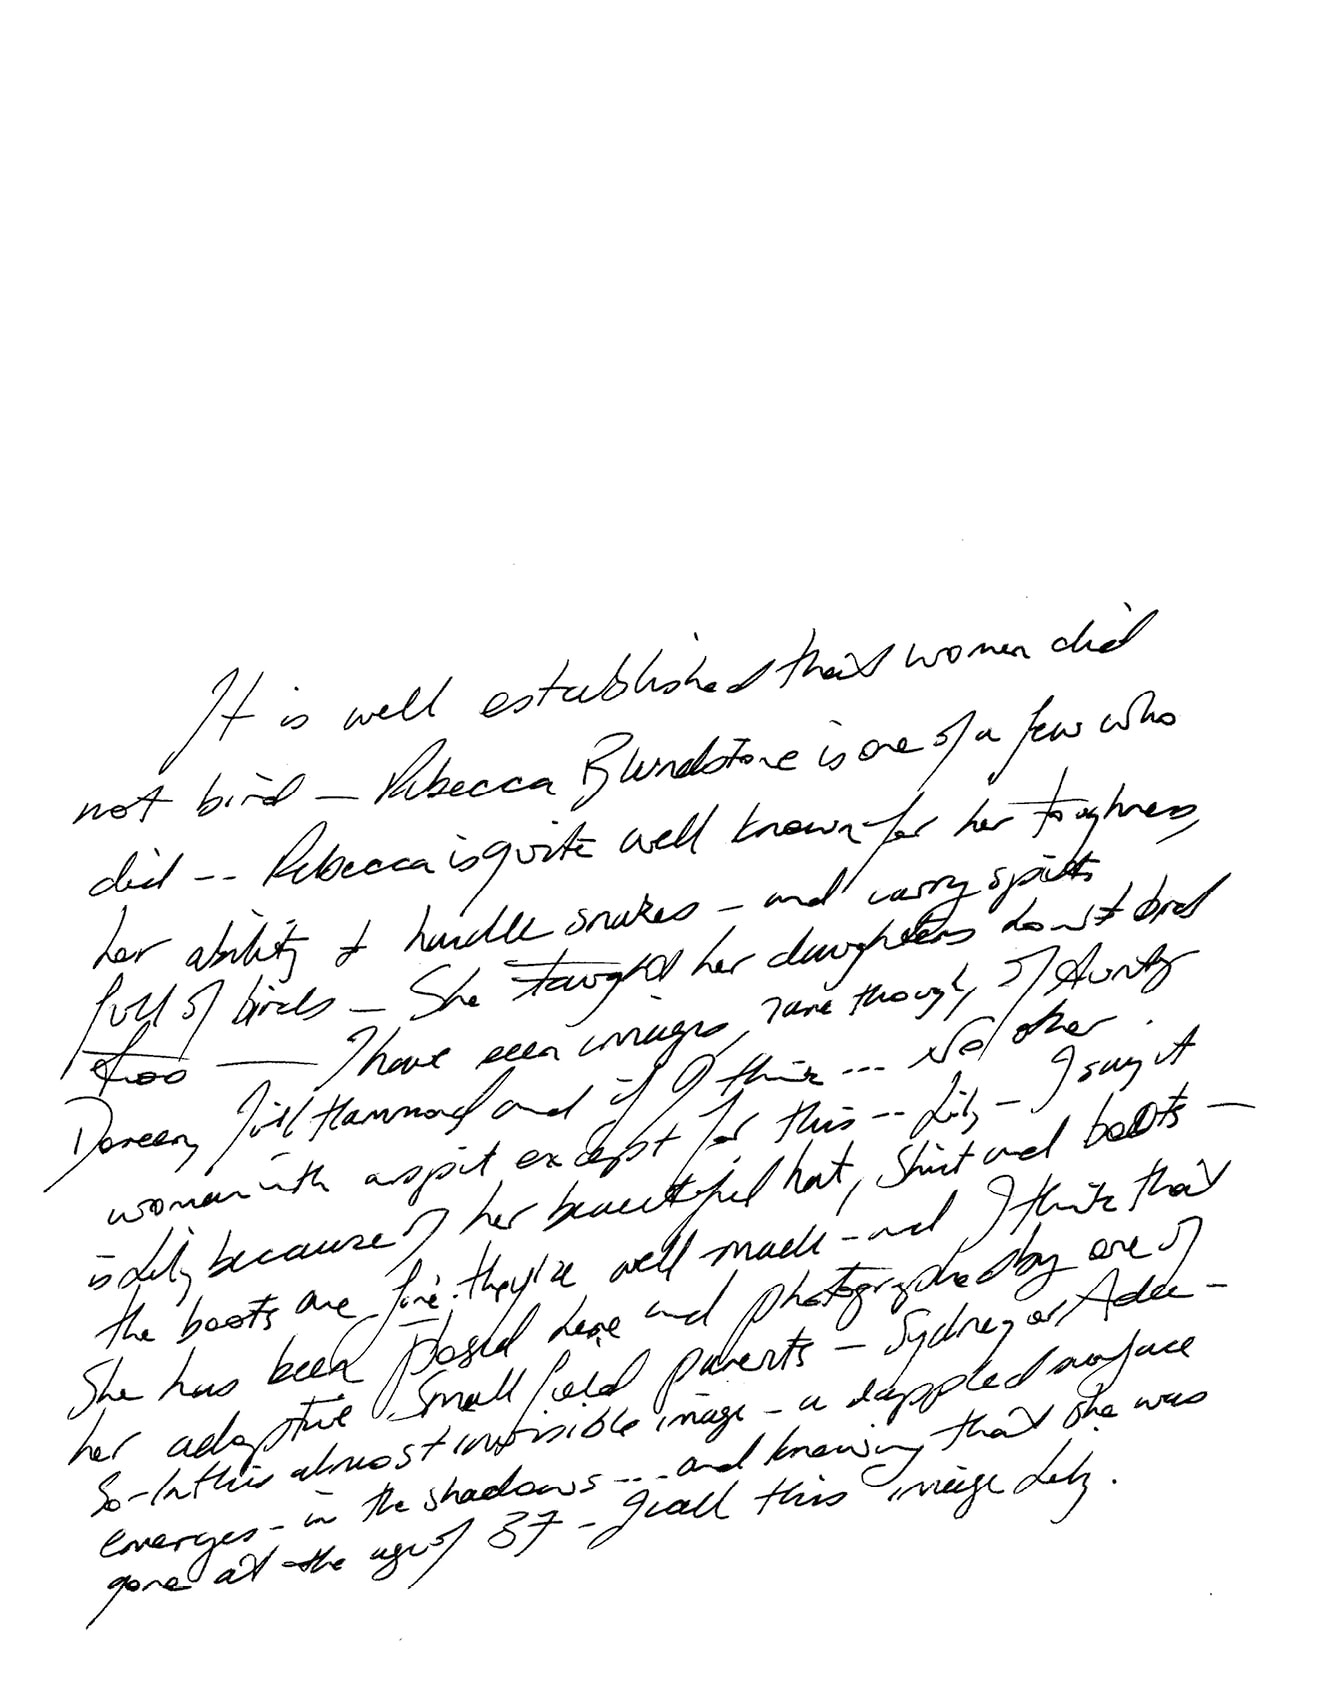 It is well established that women did
not bird — Rebecca Blundstone is one of a few who
did -- Rebecca is quite well known for her toughness,
her ability to handle snakes – and carry spits
full of birds – She taught her daughters how to bird
too —— I have seen images, rare though, of Aunty
Doreen, Jill Hammond and if I think ... No other
woman with a spit except for this -- Lily – I say it
is Lily because of her beautiful hat, shirt and boots –
the boots are fine. they're well made – and I think that
She has been posed here and photographed by one of
her adoptive Smallfield parents – Sydney or Adee –
So – In this almost invisible image – a dappled surface
emerges – in the shadows .... and knowing that she was
gone at the age of 37 – I call this image Lily.